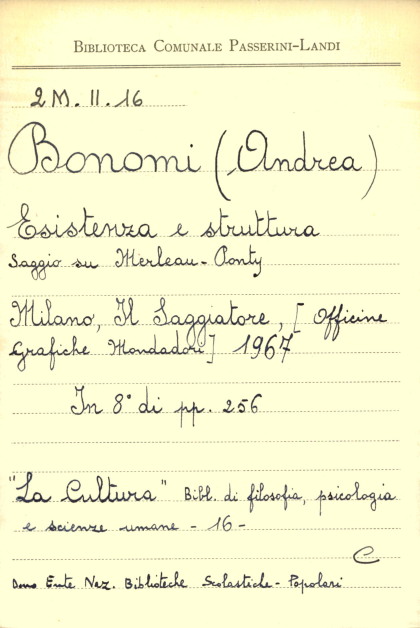 BIBLIOTECA COMUNALE PASSERINI-LANDI
2 M. II. 16
Bonomi (Andrea)
Esistenza e struttura
Saggio su Merleau-Ponty
Milano, Il Saggiatore, [Officine
Grafiche Mondadori] 1967
In 8° di pp. 256
"La Cultura" Bibl. di filosofia, psicologia
e scienze umane - 16 -
C
Dono Ente Naz. Biblioteche Scolastiche-Popolari